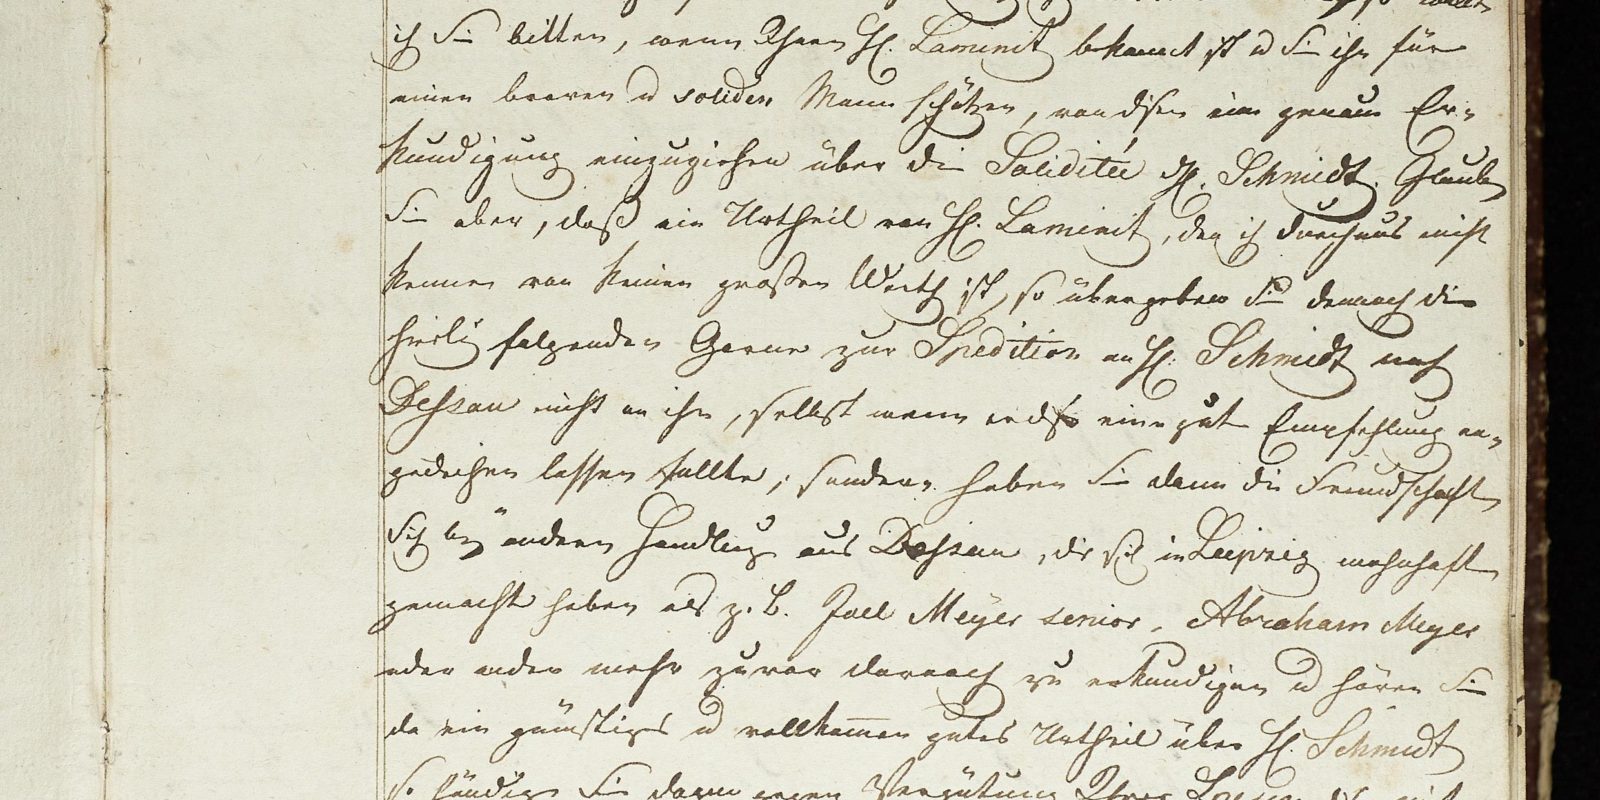 ich Sie bitten, wenn Ihnen H. Laminit bekannt ist u Sie ihn für
einen braven u soliden Mann schätzen, von disen eine genaue Er-
kundigung einzuziehen über die Solidité H. Schmidt. Glauben
Sie aber, daß ein Urtheil von H. Laminit, den ich durchaus nicht
kenne von keinen großen Werth ist, so übergeben Sie dennoch die
hierbei folgenden Garne zur Spedition an H. Schmidt nach
Dessau nicht an ihn, selbst wenn er eine gute Empfehlung an-
gedeihen lassen sollte; sondern haben Sie dann die Freundschaft
sich bey andern Handlung aus Dessau, die sich in Leipzig wohnhaft
gemacht haben als z. B. Joel Meyer senior, Abraham Meyer
oder andere mehr zuvor darnach zu erkundigen u hören Sie
da ein günstiges u vollkommen gutes Urtheil über H. Schmidt
so Sie dann gegen Vergütung Ihrer